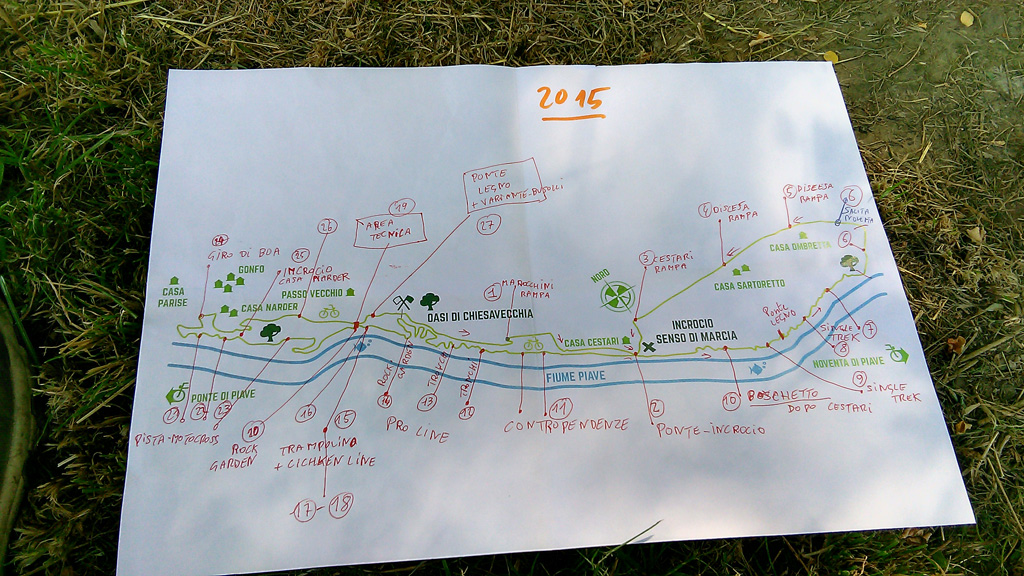 2015
PONTE
LEGNO
+ VARIANTE-BUSOLLI
27
19
AREA
TECNICA
26
GIRO DI BOA
25
INCROCIO
CASA MARDER
GONFO
CASA
PARISE
CASA NARDER
PASSO VECCHIO
OASI DI CHIESAVECCHIA
1
MAROCCHINI
RAMPA
NORD
3
CESTARI
RAMPA
4
DISCESA
RAMPA
5
DISCESA
RAMPA
6
SALITA
6
CASA OMBRETTA
CASA SARTORETTO
INCROCIO
SENSO DI MARCIA
CASA CESTARI
FIUME PIAVE
PONTE
LEGNO
7
SINGLE
TREK
8
NOVENTA DI PIAVE
9
SINGLE
TREK
10
BOSCHETTO
DOPO CESTARI
2
PONTE-INCROCIO
11
CONTROPENDENZE
12
TRONCHI
13
14
ROCK
PRO LINE
15
TRAMPOLINO
+ CICHKEN LINE
17-18
16
ROCK
GARDEN
23
PISTA-MOTOCROSS
PONTE DI PIAVE